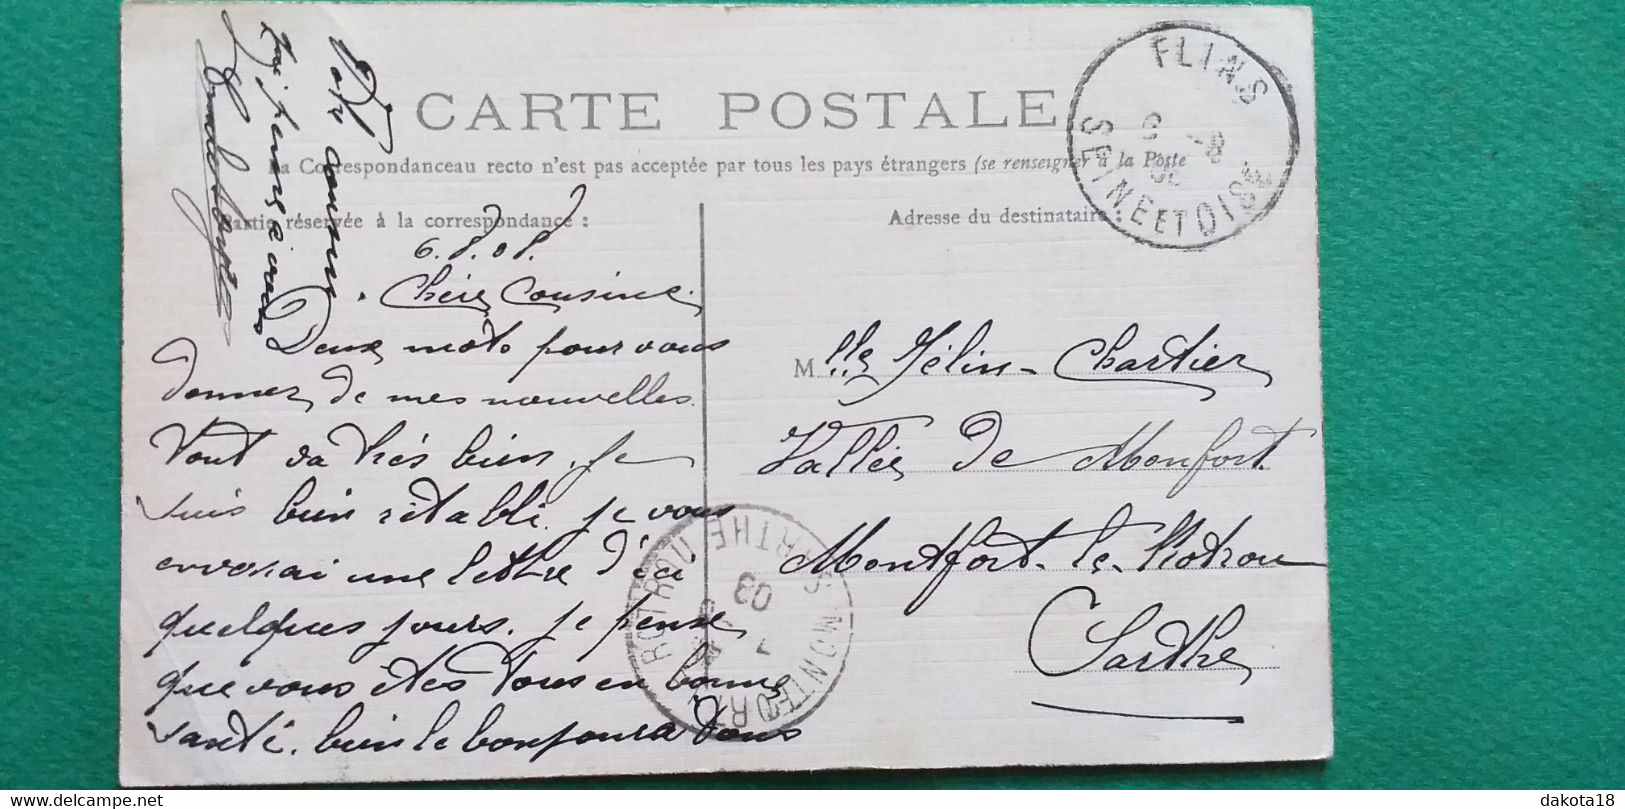 CARTE POSTALE
La Correspondance au recto n'est pas acceptée par tous les pays étrangers (se renseigner à la Poste
Partie réservée à la correspondance :
Adresse du destinataire :
FLINS
SEINE ET OISE
6.8.08.
Chère Cousine.
Deux mots pour vous
donner de mes nouvelles.
Tout va très bien. Je
suis bien rétabli. Je vous
enverai une lettre d'ici
quelques jours. Je pense
que vous êtes tous en bonne
santé. bien le bonjour à tous
Votre cousin
qui pense à vous
Mlle Félin-Chartier
Vallée de Monfort
Montfort-le-Rotrou
Sarthe
MONTFORT
ROTROU
SARTHE
delcampe.net
dakota18